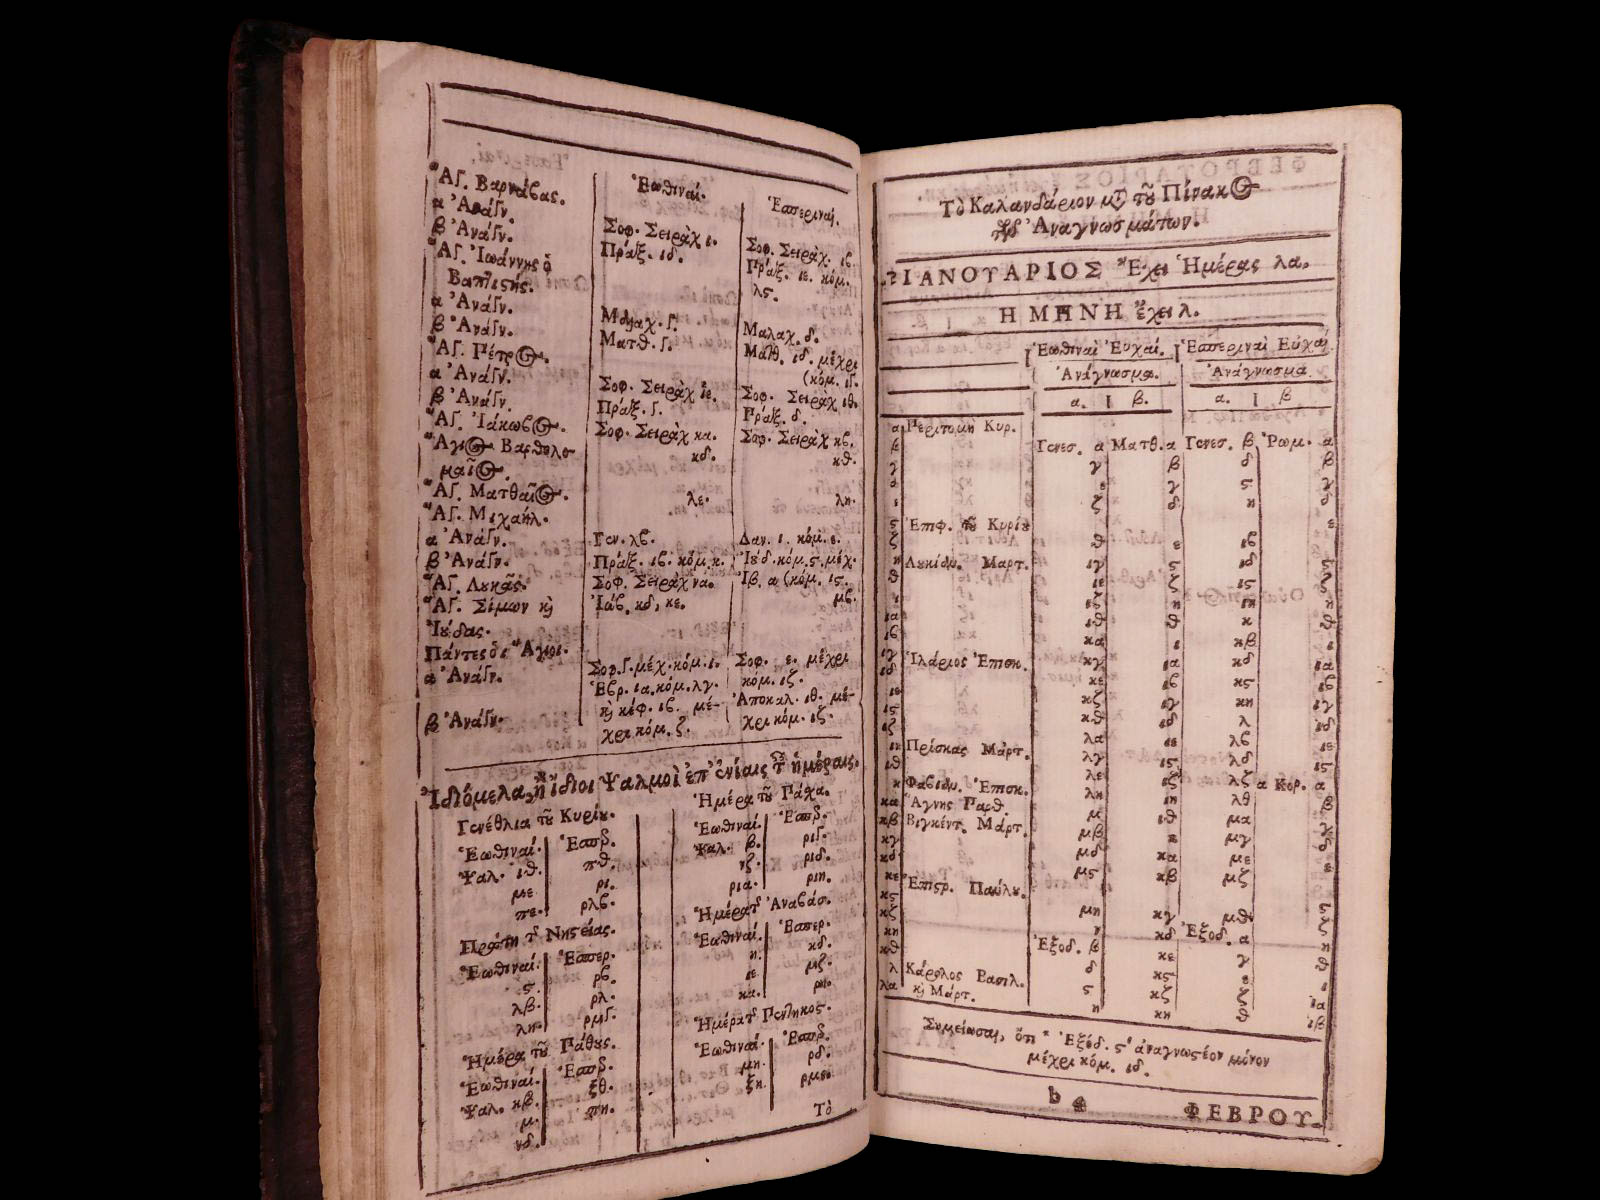 Ἑωθιναί. Ἑσπεριναί.
Ἁγ. Βαρνάβας.
α Ἀνάγν. Σοφ. Σειρὰχ ι. Σοφ. Σειρὰχ. ιβ.
β Ἀνάγν. Πράξ. ιδ. Πράξ. ιε. κόμ. λϛ.
Ἁγ. Ἰωάννης ὁ
Βαπτιστής.
α Ἀνάγν. Μαλαχ. γ. Μαλαχ. δ.
β Ἀνάγν. Ματθ. γ. Ματθ. ιδ. μέχρι
(κόμ. ιγ.
Ἁγ. Πέτρος.
α Ἀνάγν. Σοφ. Σειρὰχ ιε. Σοφ. Σειρὰχ ιθ.
β Ἀνάγν. Πράξ. γ. Πράξ. δ.
Ἁγ. Ἰάκωβος. Σοφ. Σειρὰχ κα. Σοφ. Σειρὰχ κβ.
Ἅγιος Βαρθολο-
μαῖος. κδ. κθ.
Ἁγ. Ματθαῖος. λε. λη.
Ἁγ. Μιχαήλ.
α Ἀνάγν. Γεν. λβ. Δαν. ι. κόμ. ε.
β Ἀνάγν. Πράξ. ιβ. κόμ. κ. Ἰούδ. κόμ. ϛ. μέχ.
Ἁγ. Λουκᾶς. Σοφ. Σειρὰχ να. Ἰβ. α (κόμ. ιϛ.
Ἁγ. Σίμων καὶ Ἰάβ. κδ, κε. μβ.
Ἰούδας.
Πάντες οἱ Ἅγιοι.
α Ἀνάγν. Σοφ. γ. μέχ. κόμ. ι. Σοφ. ε. μέχρι
κόμ. ιζ.
β Ἀνάγν. Ἑβρ. ια. κόμ. λγ. Ἀποκαλ. ιθ. μέ-
καὶ κέφ. ιβ. μέ- χρι κόμ. ιζ.
χρι κόμ. ζ.
Ἰδιόμελα, ἢ ἴδιοι Ψαλμοὶ ἐπ' ἐνίαις τῶν ἡμέραις.
Γενέθλια τοῦ Κυρίου.
Ἑωθιναί. Ἑσπρ.
Ψαλ. ιθ. πθ.
με ρι.
πε. ρλβ.
Πρώτη τῆς Νηστείας.
Ἑωθιναί. Ἑσπερ.
ϛ. ρβ.
λβ. ρλ.
λη. ρμγ.
Ἡμέρα τοῦ Πάθους.
Ἑωθιναί. Ἑσπρ.
Ψαλ. κβ. ξθ.
μ. πη.
νδ.
Ἡμέρα τοῦ Πάσχα.
Ἑωθιναί. Ἑσπρ.
Ψαλ. β. ριγ.
νζ. ριδ.
ρια. ριη.
Ἡμέρα τῆς Ἀναβάσ.
Ἑωθιναί. Ἑσπερ.
η. κδ.
ιε. μζ.
κα. ρη.
Ἡμέρα τῆς Πεντηκοσ.
Ἑωθιναί. Ἑσπρ.
μη. ρδ.
ξη. ρμε.
Τὸ
Τὸ Καλανδάριον μετὰ τοῦ Πίνακος
τῶν Ἀναγνωσμάτων.
ΙΑΝΟΥΑΡΙΟΣ Ἔχει Ἡμέρας λα.
Η ΜΗΝΗ ἔχει λ.
Ἑωθιναὶ Εὐχαί. Ἑσπεριναὶ Εὐχαί
Ἀνάγνωσμα. Ἀνάγνωσμα
α. β. α. β
α Περιτομὴ Κυρ.
β Γενεσ. α Ματθ. α Γενεσ. β Ῥωμ. α
γ γ β δ β
δ ε γ ϛ γ
ε ζ δ η δ
ϛ Ἐπιφ. τοῦ Κυρίου ε
ζ θ ε ιβ
η Λουκίαν. Μαρτ. ιγ ϛ ιδ ϛ
θ ιε ζ ιϛ ζ
ι ιζ η ιη η
ια ιθ θ κ θ
ιβ κα ι κβ ι
ιγ Ἱλάριος Ἐπισκ. κγ ια κδ ια
ιδ κε ιβ κϛ ιβ
ιε κζ ιγ κη ιγ
ιϛ κθ ιδ λ ιδ
ιζ λα ιε λβ ιε
ιη Πρίσκας Μάρτ. λγ ιϛ λδ ιϛ
ιθ λε ιζ λζ α Κορ. α
κ Φαβιάν. Ἐπισκ. λη ιη λθ β
κα Ἅγνης Παρθ. μ ιθ μα γ
κβ Βιγκέντ. Μάρτ. μβ κ μγ δ
κγ μδ κα με ε
κδ μϛ κβ μζ ϛ
κε Ἐπιστρ. Παύλου.
κϛ μη κγ μθ ζ
κζ ν κδ Ἐξοδ. α η
κη Ἐξοδ. β κε γ θ
κθ δ κϛ ε ι
λ Κάρολος Βασιλ. ϛ κζ ζ ια
λα καὶ Μάρτ. η κη θ ιβ
Σημείωσαι, ὅτι * Ἐξόδ. ϛ, ἀναγνωστέον μόνον
μέχρι κόμ. ιδ.
b 4 ΦΕΒΡΟΥ-